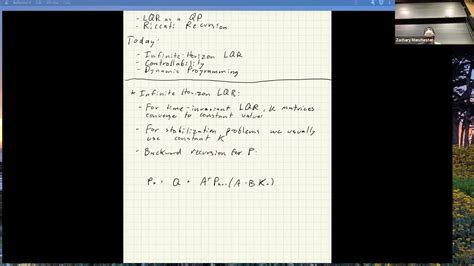 - LQR as a QP
- Riccati Recursion
Today:
- Infinite-Horizon LQR
- Controllability
- Dynamic Programming
* Infinite Horizon LQR:
- For time-invariant LQR, K matrices
converge to constant value
- For stabilization problems we usually
use constant K
- Backward recursion for P:
Zachary Manchester